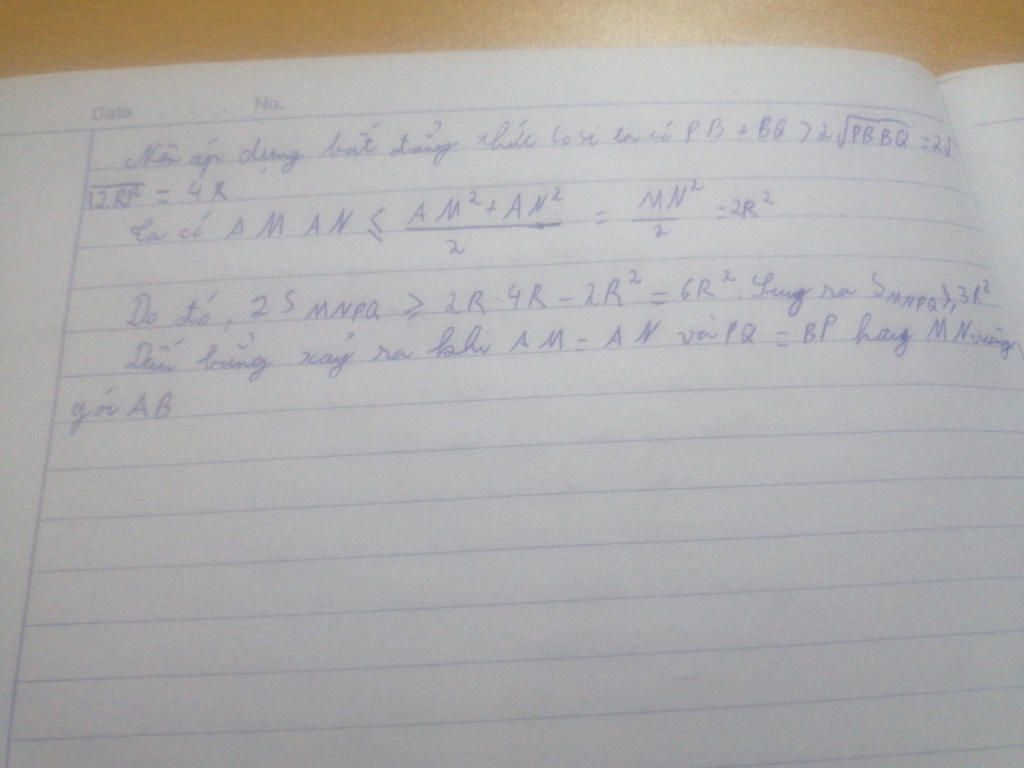 Date No.
Nên áp dụng bất đẳng thức Cosi ta có PB + BQ ≥ 2√PB.BQ = 2√
(2R)² = 4R
Ta có AM.AN ≤ (AM² + AN²)/2 = MN²/2 = 2R²
Do đó, 2S MNPQ ≥ 2R.4R - 2R² = 6R². Suy ra S MNPQ ≥ 3R²
Dấu bằng xảy ra khi AM = AN và PQ = BP hay MN vuông
góc AB